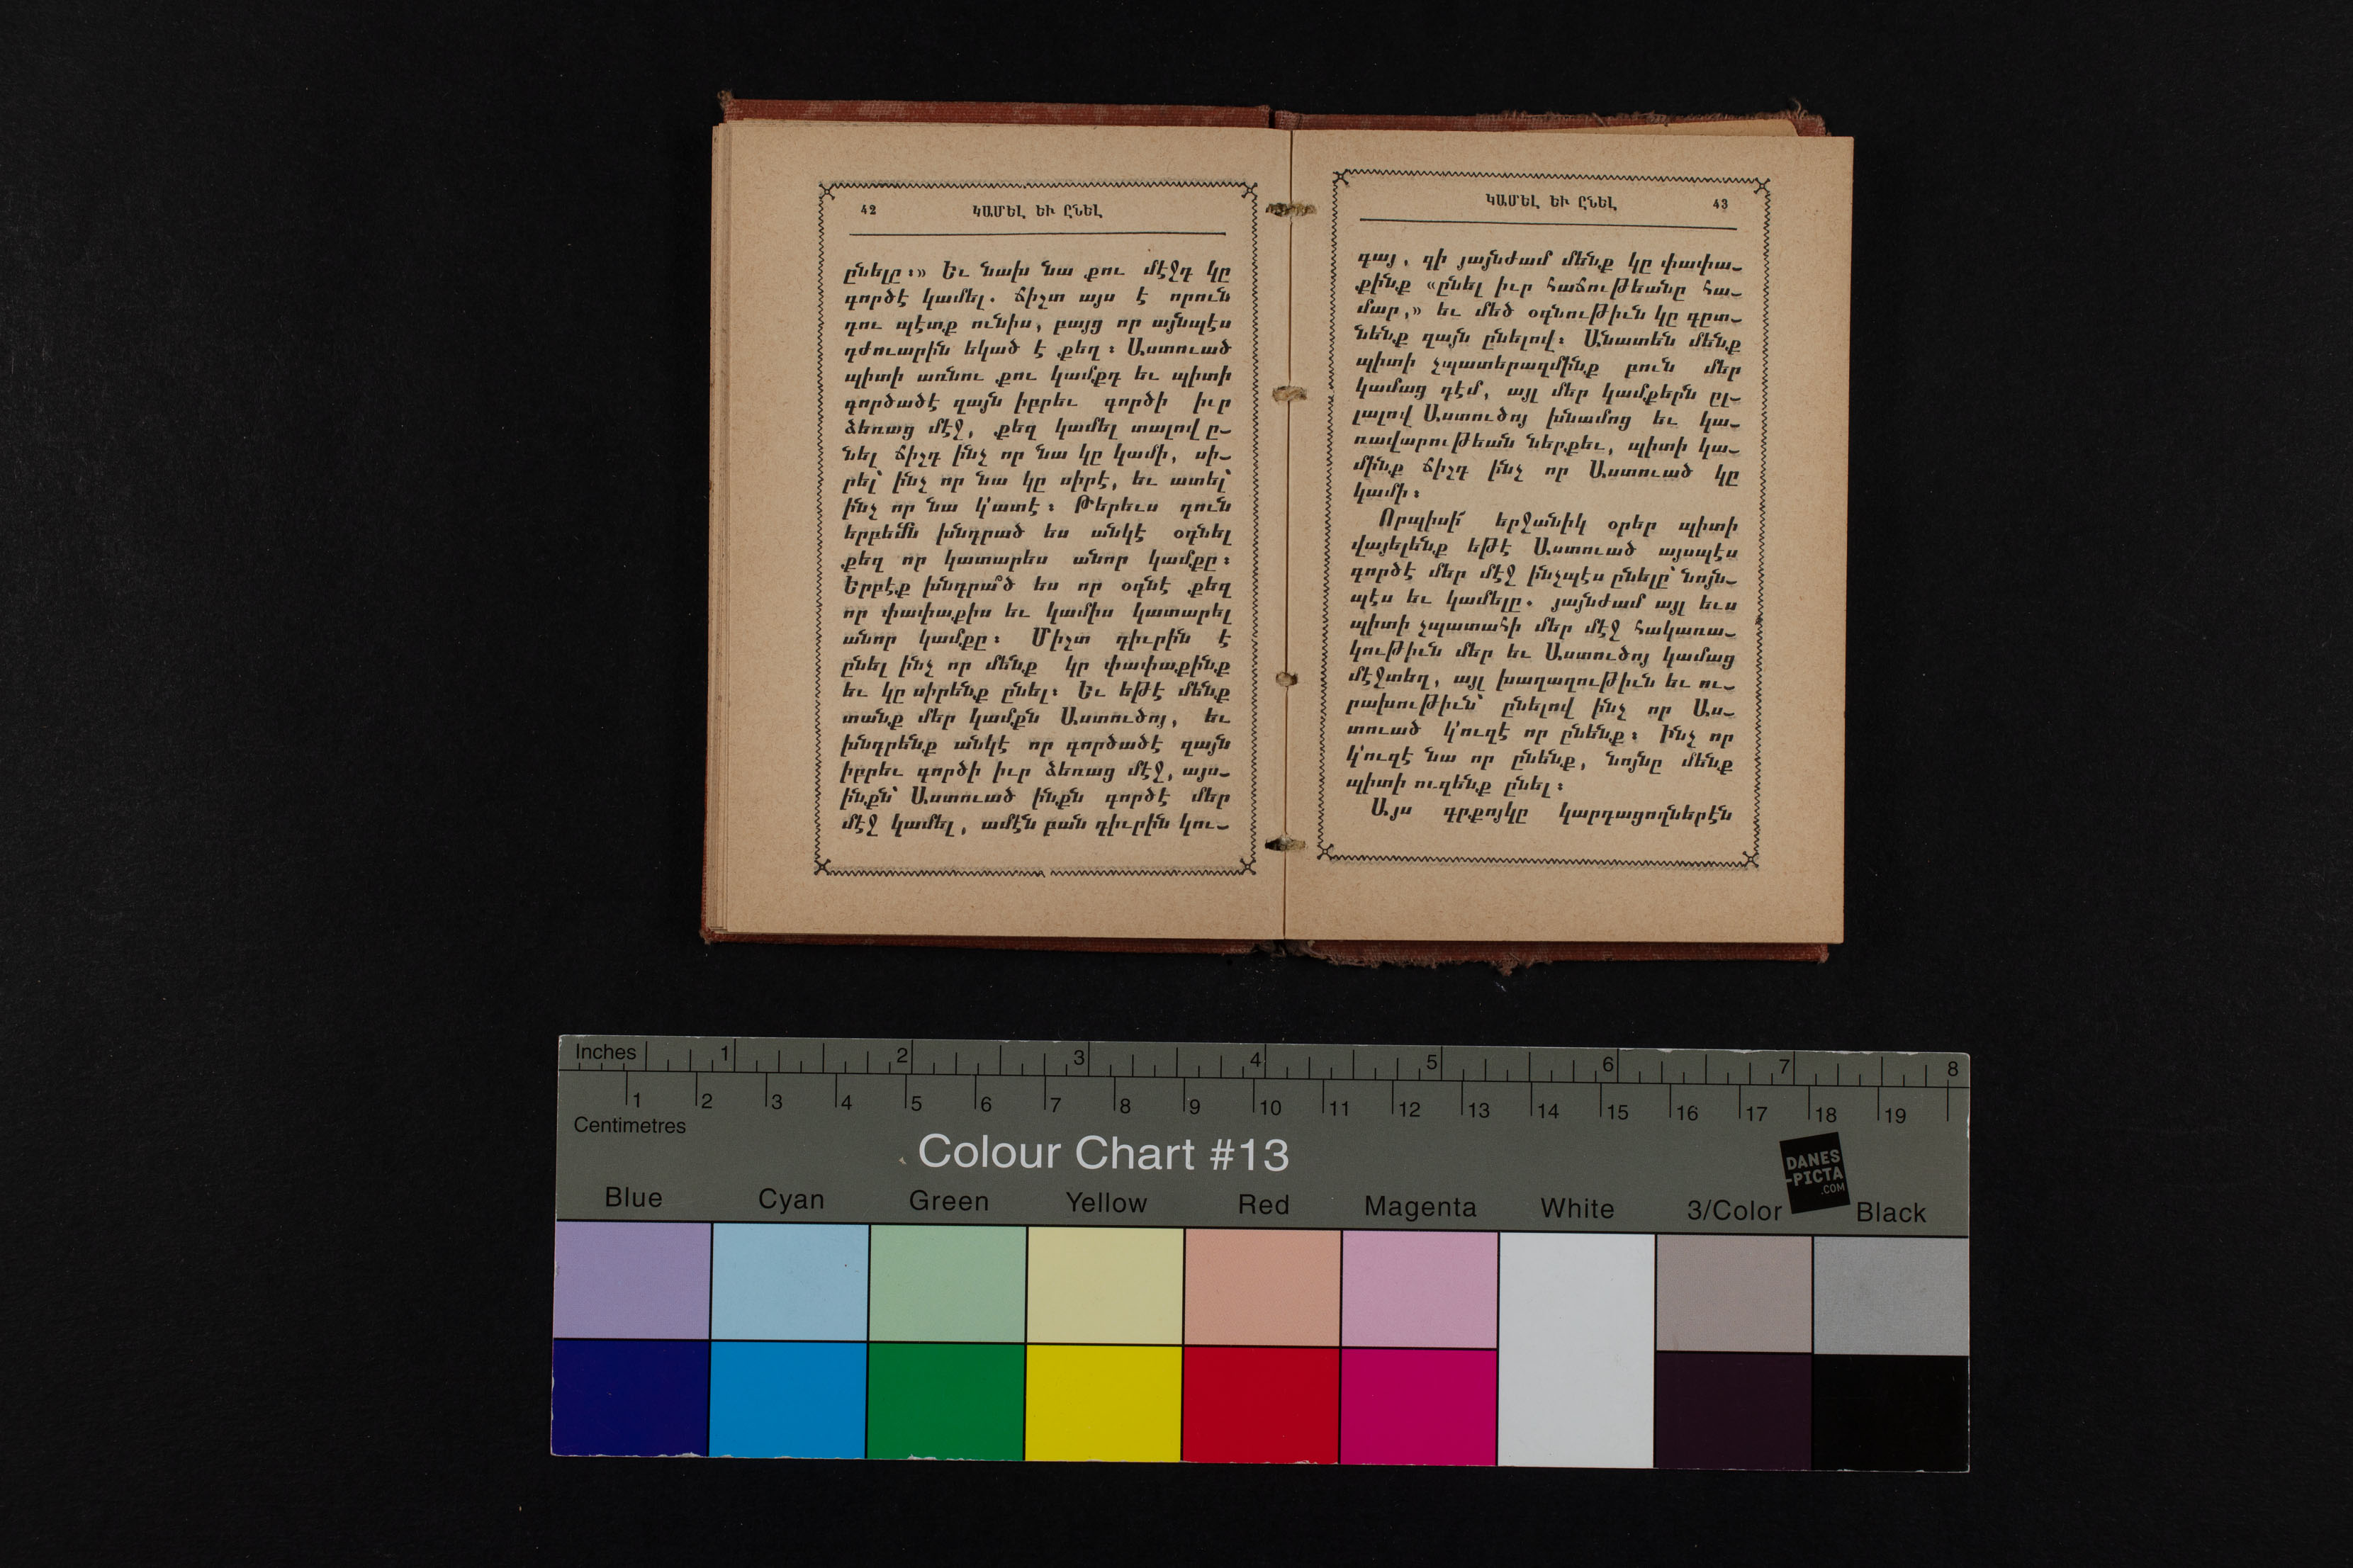 42 ԿԱՄԵԼ ԵՒ ԸՆԵԼ
ընելը։» Եւ նախ նա քու մէջդ կը
գործէ կամել. ճիշտ այս է որուն
դու պէտք ունիս, բայց որ այնպէս
դժուարին եկած է քեզ։ Աստուած
պիտի առնու քու կամքդ եւ պիտի
գործածէ զայն իբրեւ գործի իւր
ձեռաց մէջ, քեզ կամել տալով ը-
նել ճիշդ ինչ որ նա կը կամի, սի-
րել՝ ինչ որ նա կը սիրէ, եւ ատել՝
ինչ որ նա կ՚ատէ։ Թերեւս դուն
երբեմն խնդրած ես անկէ օգնել
քեզ որ կատարես անոր կամքը։
Երբէք խնդրա՞ծ ես որ օգնէ քեզ
որ փափաքիս եւ կամիս կատարել
անոր կամքը։ Միշտ դիւրին է
ընել ինչ որ մենք կը փափաքինք
եւ կը սիրենք ընել։ Եւ եթէ մենք
տանք մեր կամքն Աստուծոյ, եւ
խնդրենք անկէ որ գործածէ զայն
իբրեւ գործի իւր ձեռաց մէջ, այս-
ինքն՝ Աստուած ինքն գործէ մեր
մէջ կամել, ամէն բան դիւրին կու-
ԿԱՄԵԼ ԵՒ ԸՆԵԼ 43
գայ, զի յայնժամ մենք կը փափա-
քինք «ընել իւր հաճութեանը հա-
մար,» եւ մեծ օգնութիւն կը գըտ-
նենք զայն ընելով։ Անատեն մենք
պիտի չպատերազմինք բուն մեր
կամաց դէմ, այլ մեր կամքերն ըլ-
լալով Աստուծոյ խնամոց եւ կա-
ռավարութեան ներքեւ, պիտի կա-
մինք ճիշդ ինչ որ Աստուած կը
կամի։
Որպիսի՜ երջանիկ օրեր պիտի
վայելենք եթէ Աստուած այսպէս
գործէ մեր մէջ ինչպէս ընելը՝ նոյն-
պէս եւ կամելը. յայնժամ այլ եւս
պիտի չպատահի մեր մէջ հակառա-
կութիւն մեր եւ Աստուծոյ կամաց
մէջտեղ, այլ խաղաղութիւն եւ ու-
րախութիւն՝ ընելով ինչ որ Աս-
տուած կ՚ուզէ որ ընենք։ Ինչ որ
կ՚ուզէ նա որ ընենք, նոյնը մենք
պիտի ուզենք ընել։
Այս գրքոյկը կարդացողներէն
Inches 1 2 3 4 5 6 7 8
1 2 3 4 5 6 7 8 9 10 11 12 13 14 15 16 17 18 19
Centimetres
Colour Chart #13
DANES
-PICTA
.COM
Blue Cyan Green Yellow Red Magenta White 3/Color Black